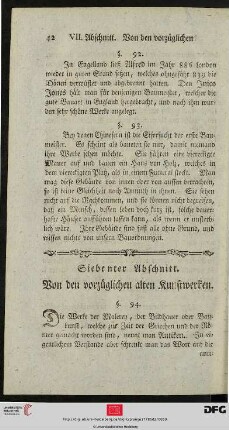 42 VII. Abschnitt. Von den vorzüglichen
§. 92.
In Engelland ließ Alfred im Jahr 886 London
wieder in guten Stand setzen, welches ohngefähr 839 die
Dänen verwüstet und abgebrannt hatten. Den Inigo
Jones hält man für denjenigen Baumeister, welcher die
gute Bauart in England hergebracht, und nach ihm wur-
den sehr schöne Werke angelegt.
§. 93.
Bey denen Chinesern ist die Eifersucht der erste Bau-
meister. Es scheint als baueten sie nur, damit niemand
ihre Werke sehen möchte. Sie führen eine viereckigte
Mauer auf und bauen ein Haus von Holz, welches in
dem viereckigten Platz, als in einem Futteral steckt. Man
mag diese Gebäude von innen oder von aussen betrachten,
so ist keine Gleichheit noch Anmuth in ihnen. Sie sehen
nicht auf die Nachkommen, und sie können nicht begreifen,
daß ein Mensch, dessen Leben doch kurz ist, solche dauer-
hafte Häuser aufführen lassen kann, als wenn er unsterblich
wäre. Ihre Gebäude sind fast alle ohne Grund, und
wissen nichts von unsern Bauordnungen.
Siebenter Abschnitt.
Von den vorzüglichen alten Kunstwerken.
§. 94.
Die Werke der Malerey, der Bildhauer oder Bau-
kunst, welche zur Zeit der Griechen und der Rö-
mer gemacht worden sind, nennt man Antiken. In ei-
gentlichem Verstande aber schränkt man das Wort auf die
DFG